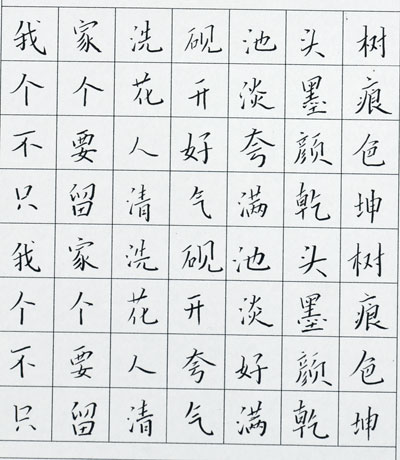 我家洗砚池头树
个个花开淡墨痕
不要人好夸颜色
只留清气满乾坤
我家洗砚池头树
个个花开淡墨痕
不要人夸好颜色
只留清气满乾坤